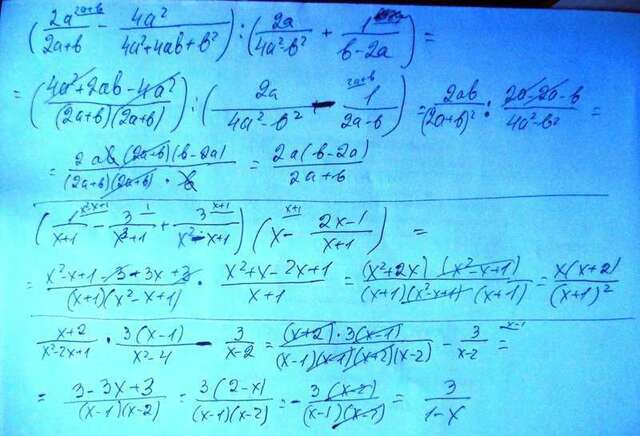 (2a^{2a+b}/(2a+b) - 4a²/(4a²+4ab+b²)) : (2a/(4a²-b²) + 1/(b-2a)) =
= ((4a²+2ab-4a²)/((2a+b)(2a+b))) : (2a/(4a²-b²) - 1^{2a+b}/(2a-b)) = 2ab/(2a+b)² : (2a-2a-b)/(4a²-b²) =
= 2ab(2a+b)(b-2a)/((2a+b)(2a+b)·b) = 2a(b-2a)/(2a+b)
(1^{x²-x+1}/(x+1) - 3^{1}/(x³+1) + 3^{x+1}/(x²-x+1)) (x^{x+1} - (2x-1)/(x+1)) =
= (x²-x+1-3+3x+3)/((x+1)(x²-x+1)) · (x²+x-2x+1)/(x+1) = (x²+2x)(x²-x+1)/((x+1)(x²-x+1)(x+1)) = x(x+2)/(x+1)²
(x+2)/(x²-2x+1) · 3(x-1)/(x²-4) - 3/(x-2) = (x+2)·3(x-1)/((x-1)(x-1)(x+2)(x-2)) - 3^{x-1}/(x-2) =
= (3-3x+3)/((x-1)(x-2)) = 3(2-x)/((x-1)(x-2)) = -3(x-2)/((x-1)(x-2)) = 3/(1-x)